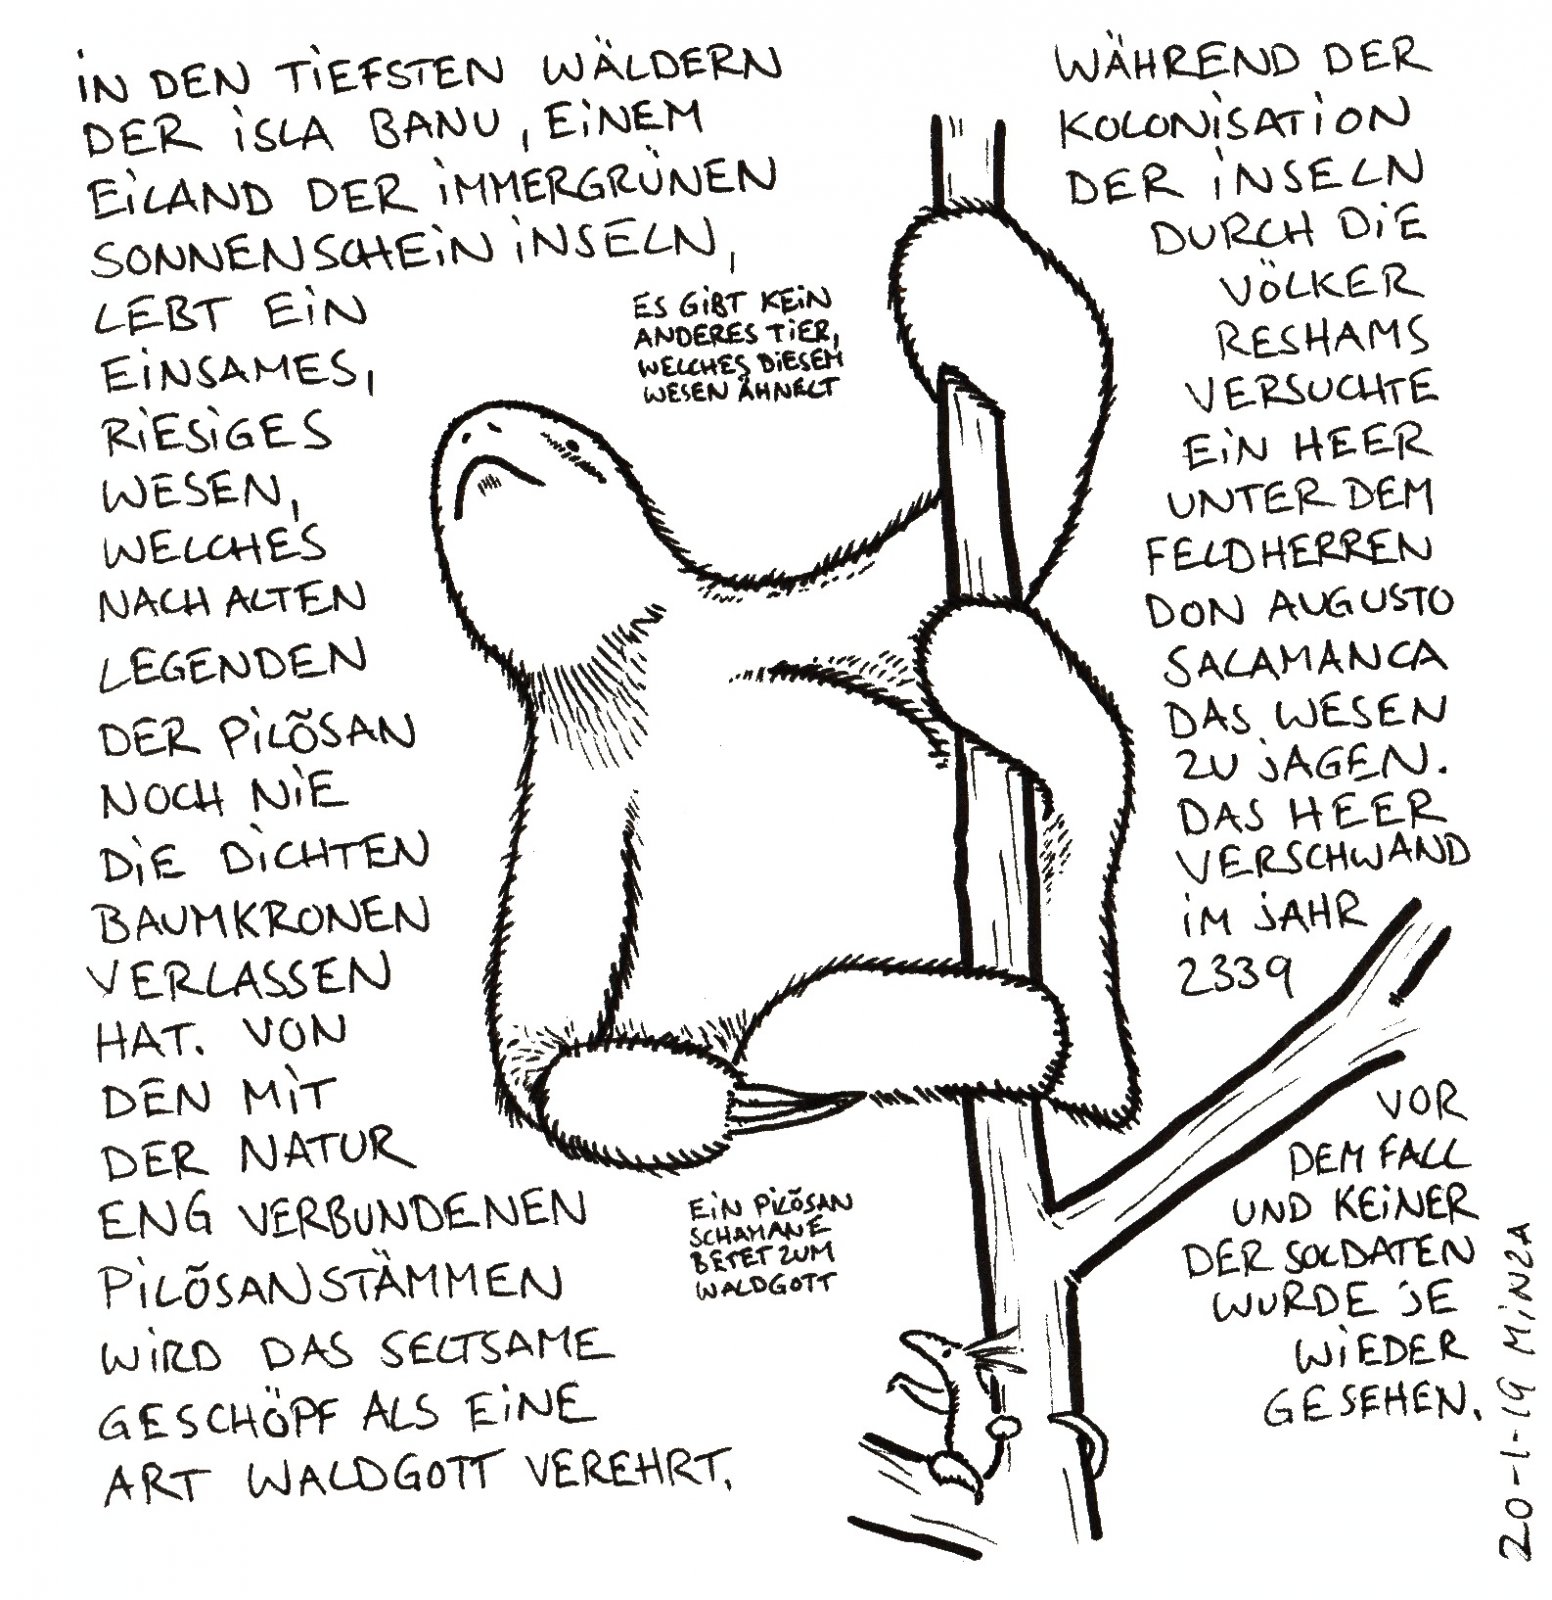 iN DEN TiEFSTEN WÄLDERN
DER iSLA BANU, EiNEM
EiLAND DER iMMERGRÜNEN
SONNENSCHEiN iNSELN,
LEBT EiN
EiNSAMES,
RiESiGES
WESEN,
WELCHES
NACH ALTEN
LEGENDEN
DER PiLÕSAN
NOCH NiE
DiE DiCHTEN
BAUMKRONEN
VERLASSEN
HAT. VON
DEN MiT
DER NATUR
ENG VERBUNDENEN
PiLÕSANSTÄMMEN
WiRD DAS SELTSAME
GESCHÖPF ALS EiNE
ART WALDGOTT VEREHRT.
ES GiBT KEiN
ANDERES TiER,
WELCHES DiESEM
WESEN ÄHNELT
EiN PiLÕSAN
SCHAMANE
BETET ZUM
WALDGOTT
WÄHREND DER
KOLONiSATiON
DER iNSELN
DURCH DiE
VÖLKER
RESHAMS
VERSUCHTE
EiN HEER
UNTER DEM
FELDHERREN
DON AUGUSTO
SALAMANCA
DAS WESEN
ZU jAGEN.
DAS HEER
VERSCHWAND
iM jAHR
2339
VOR
DEM FALL
UND KEiNER
DER SOLDATEN
WURDE jE
WiEDER
GESEHEN.
20-1-19 MiNZA